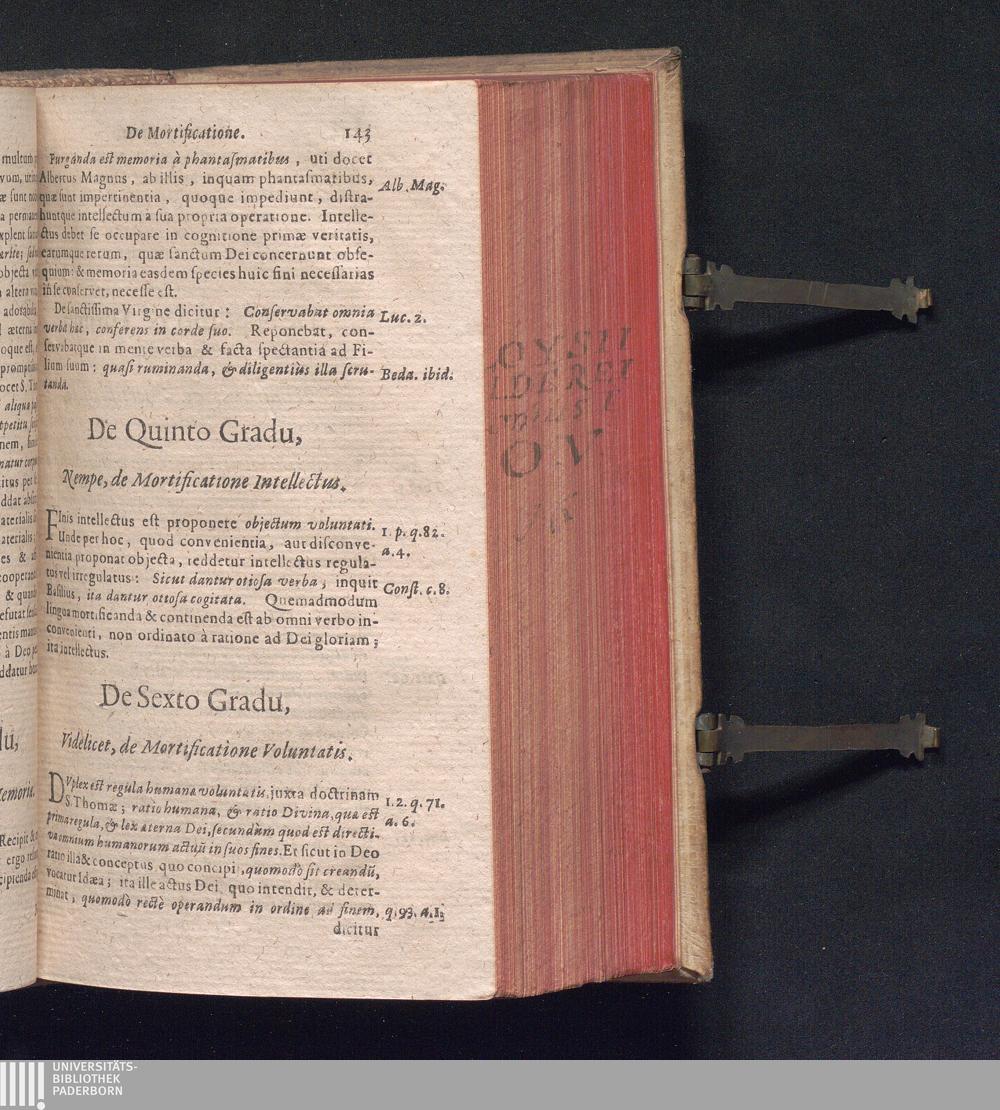 De Mortificatione. 143
Purganda est memoria à phantaſmatibus, uti docet
Albertus Magnus, ab illis, inquam phantaſmatibus,
Alb. Mag.
quæ ſunt impertinentia, quoque impediunt, diſtra-
huntque intellectum a ſua propria operatione. Intelle-
ctus debet ſe occupare in cognitione primæ veritatis,
earumque rerum, quæ ſanctum Dei concernunt obſe-
quium: & memoria easdem ſpecies huic fini neceſſarias
in ſe conſervet, neceſſe eſt.
De ſanctiſſima Virgine dicitur: Conſervabat omnia
Luc. 2.
verba hæc, conferens in corde ſuo. Reponebat, con-
ſervabatque in mente verba & facta ſpectantia ad Fi-
lium ſuum: quaſi ruminanda, & diligentiùs illa ſcru-
Beda. ibid.
tanda.
De Quinto Gradu,
Nempe, de Mortificatione Intellectus.
FInis intellectus eſt proponere objectum voluntati.
1. p. q. 82.
Unde per hoc, quod convenientia, aut diſconve-
a. 4.
nientia proponat objecta, reddetur intellectus regula-
tus vel irregulatus: Sicut dantur otioſa verba, inquit
Conſt. c. 8.
Baſilius, ita dantur otioſa cogitata. Quemadmodum
lingua mortificanda & continenda eſt ab omni verbo in-
convenienti, non ordinato à ratione ad Dei gloriam;
ita intellectus.
De Sexto Gradu,
Videlicet, de Mortificatione Voluntatis.
DVplex eſt regula humanæ voluntatis juxta doctrinam
1. 2. q. 71.
S. Thomæ; ratio humana, & ratio Divina, quæ eſt
a. 6.
prima regula, & lex æterna Dei, ſecundùm quod eſt directi-
va omnium humanorum actuū in ſuos fines. Et ſicut in Deo
ratio illa & conceptus quo concipi, quomodò ſit creandū,
vocatur Idæa; ita ille actus Dei quo intendit, & deter-
minat, quomodò rectè operandum in ordine ad finem,
q. 93. a. 1.
dicitur
UNIVERSITÄTS-
BIBLIOTHEK
PADERBORN